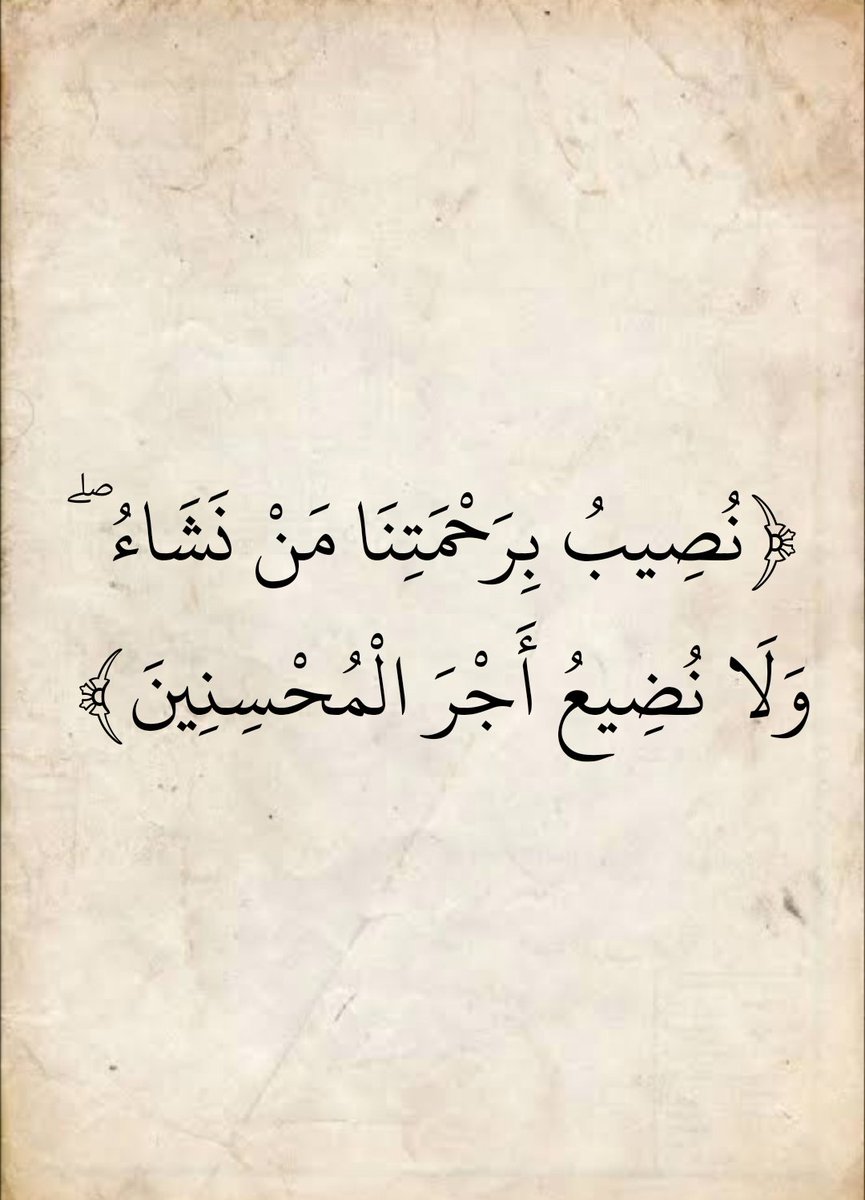 ﴿نُصِيبُ بِرَحْمَتِنَا مَنْ نَشَاءُ ۖ
وَلَا نُضِيعُ أَجْرَ الْمُحْسِنِينَ﴾